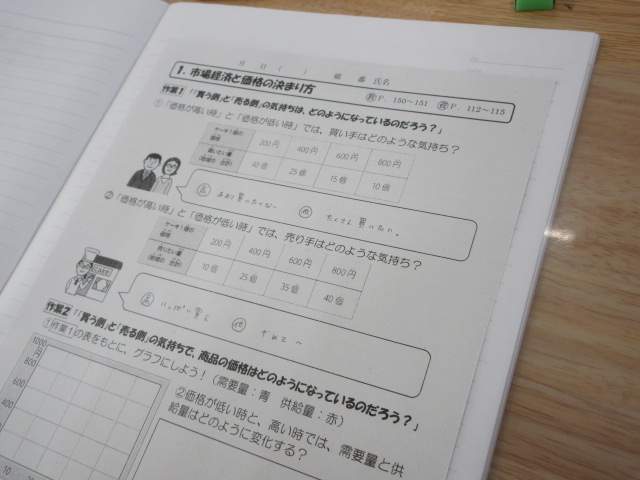 月 日（ ） 組 番 氏名
1. 市場経済と価格の決まり方 教P. 150~151 資P. 112~115
作業1「「買う側」と「売る側」の気持ちは、どのようになっているのだろう？」
①「価格が高い時」と「価格が低い時」では、買い手はどのような気持ち？
ケーキ1個の価格 200円 400円 600円 800円
買いたい量（地域の 合計） 40個 25個 15個 10個
高 あまり買いたくない 低 たくさん買いたい。
②「価格が高い時」と「価格が低い時」では、売り手はどのような気持ち？
ケーキ1個の価格 200円 400円 600円 800円
売りたい量（地域の 合計） 10個 25個 35個 40個
cake
高 いっぱい売る 低
作業2「「買う側」と「売る側」の気持ちで、商品の価格はどのようになっているのだろう？」
①作業1の表をもとに、グラフにしよう！（需要量：青 供給量：赤）
1000
円
800
600
400
200
10
②価格が低い時と、高い時では、需要量と供
給量はどのように変化する？